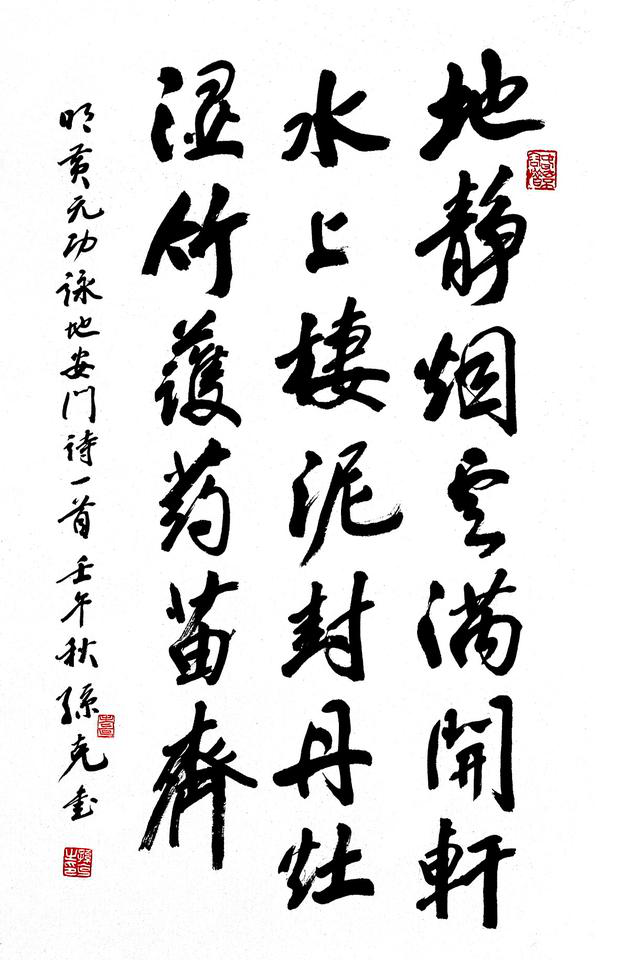 地静烟云满開軒
水上棲泥封丹灶
湿竹護药苗齊
明黄元功詠地安門诗一首壬午秋孫克書